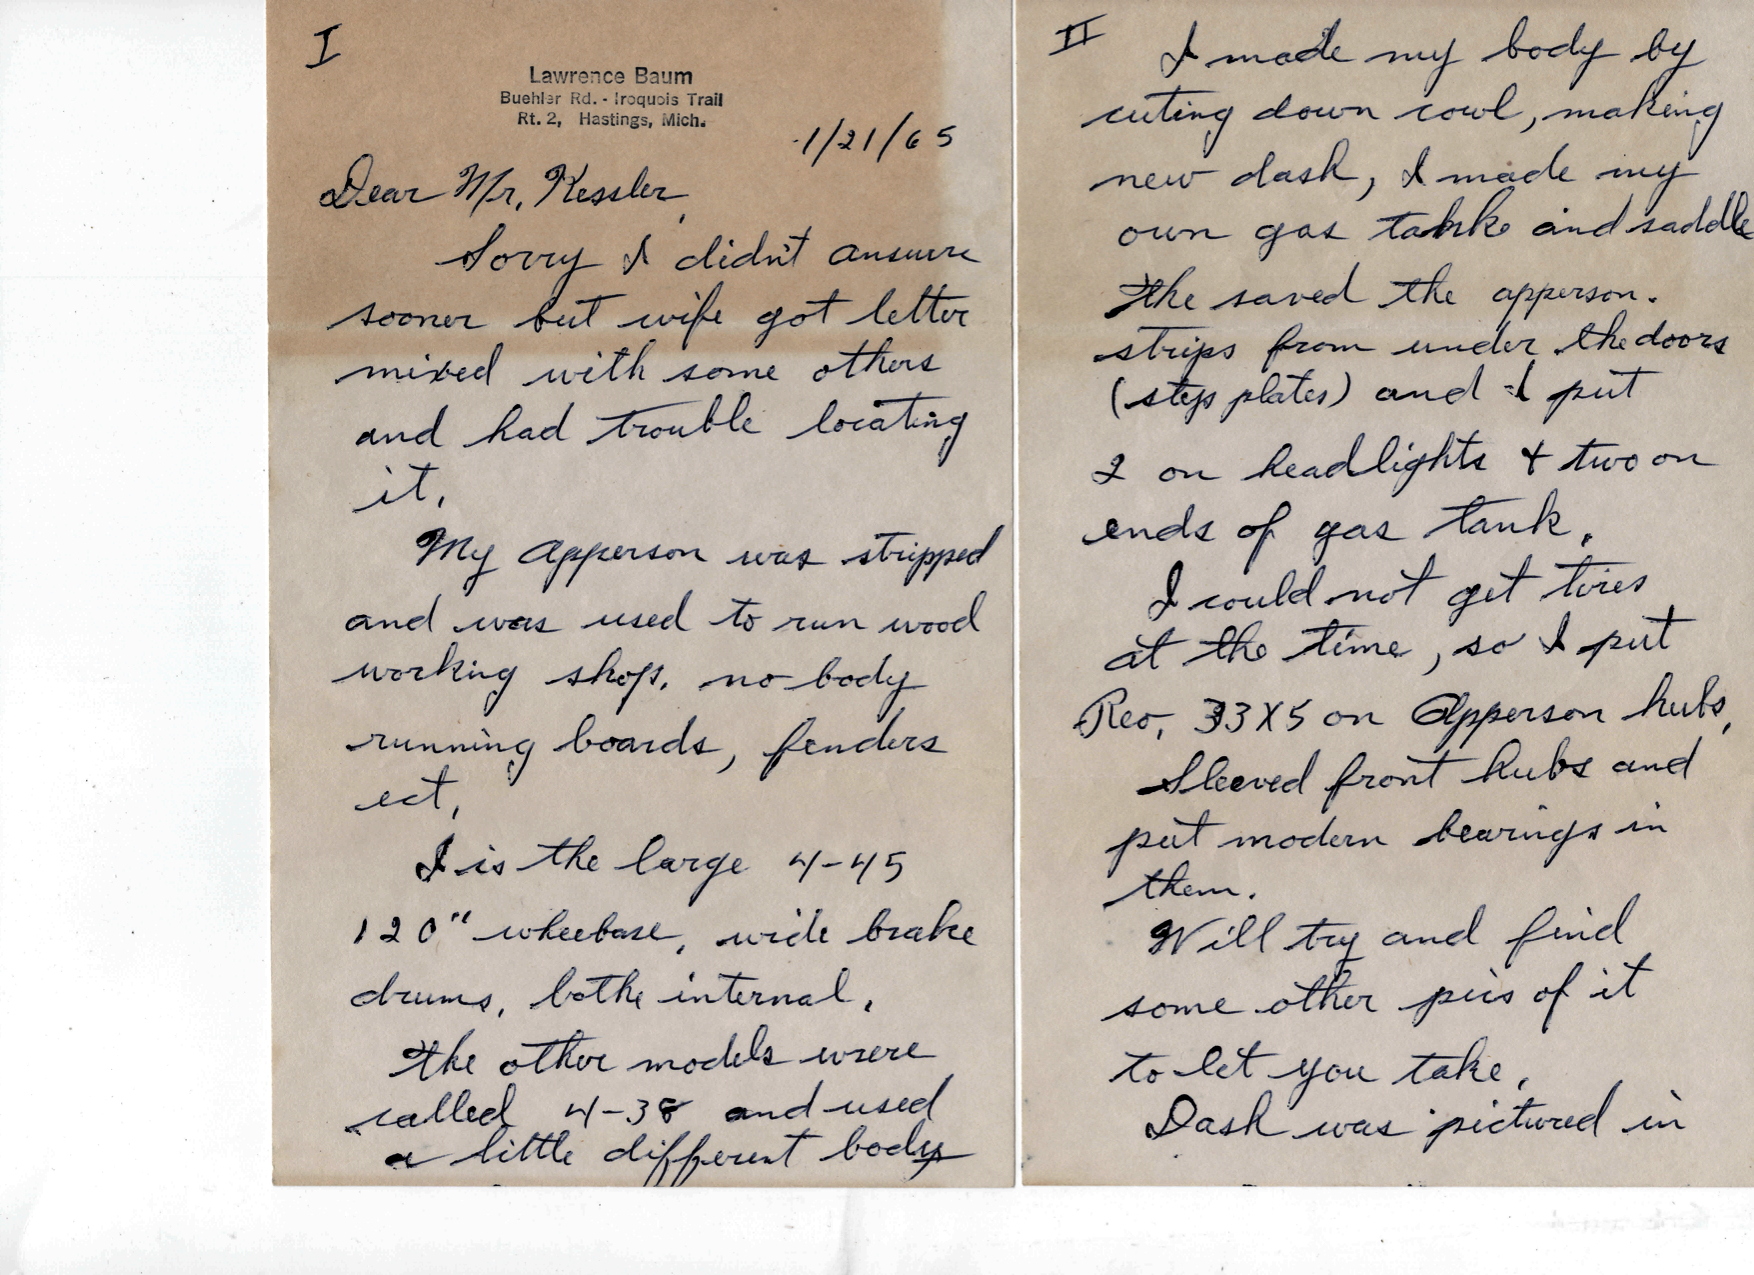 I
Lawrence Baum
Buehler Rd. - Iroquois Trail
Rt. 2, Hastings, Mich.
1/21/65
Dear Mr. Kessler,
Sorry I didn't answere
sooner but wife got letter
mixed with some others
and had trouble locating
it.
My Apperson was stripped
and was used to run wood
working shop. no body
running boards, fenders
ect.
I is the large 4-45
120" wheebase, wide brake
drums, bothe internal.
the other models were
called 4-38 and used
a little different body
II
I made my body by
cuting down cowl, making
new dash, I made my
own gas tank and saddle
the saved the apperson.
strips from under the doors
(step plates) and I put
2 on headlights + two on
ends of gas tank.
I could not get tires
at the time, so I put
Reo, 33X5 on Apperson hubs,
Sleeved front hubs and
put modern bearings in
them.
Will try and find
some other pics of it
to let you take.
Dash was pictured in